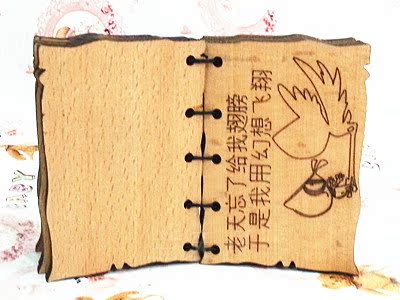 老天忘了给我翅膀
于是我用幻想飞翔